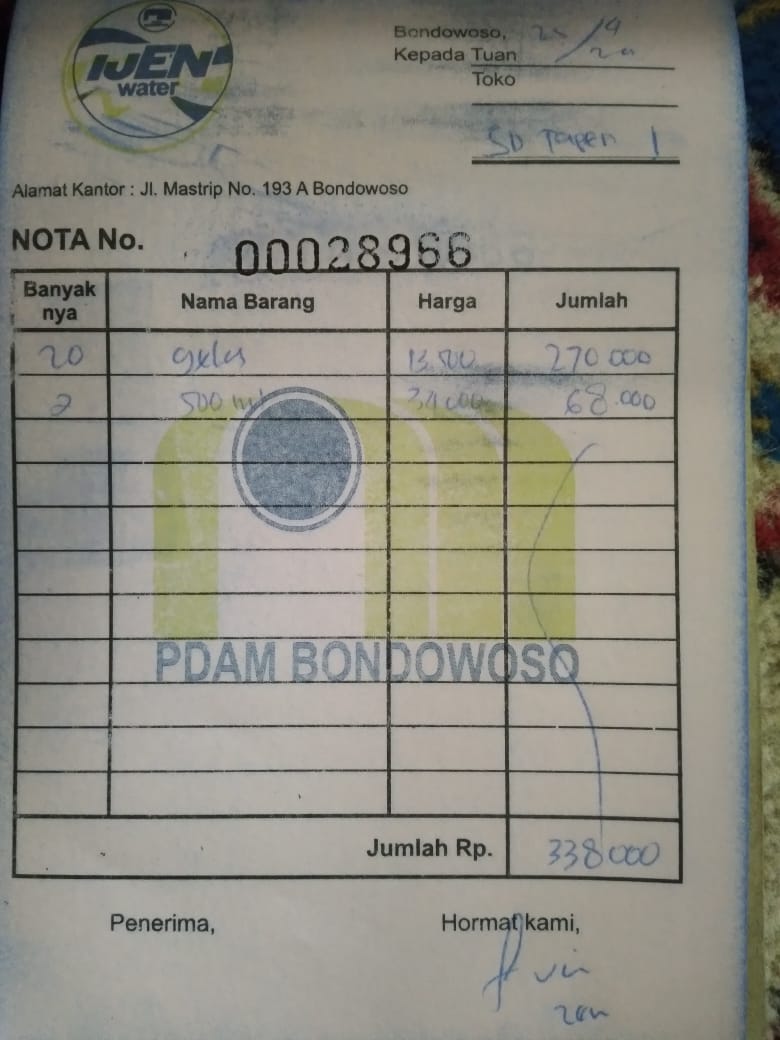 IJEN
water
Bondowoso, /4
Kepada Tuan /20
Toko
SD Tapen 1
Alamat Kantor : Jl. Mastrip No. 193 A Bondowoso
NOTA No. 00028966
Banyak nya Nama Barang Harga Jumlah
20 gelas 13.500 270 000
2 500 ml 34 000 68.000
PDAM BONDOWOSO
Jumlah Rp. 338000
Penerima, Hormat kami,